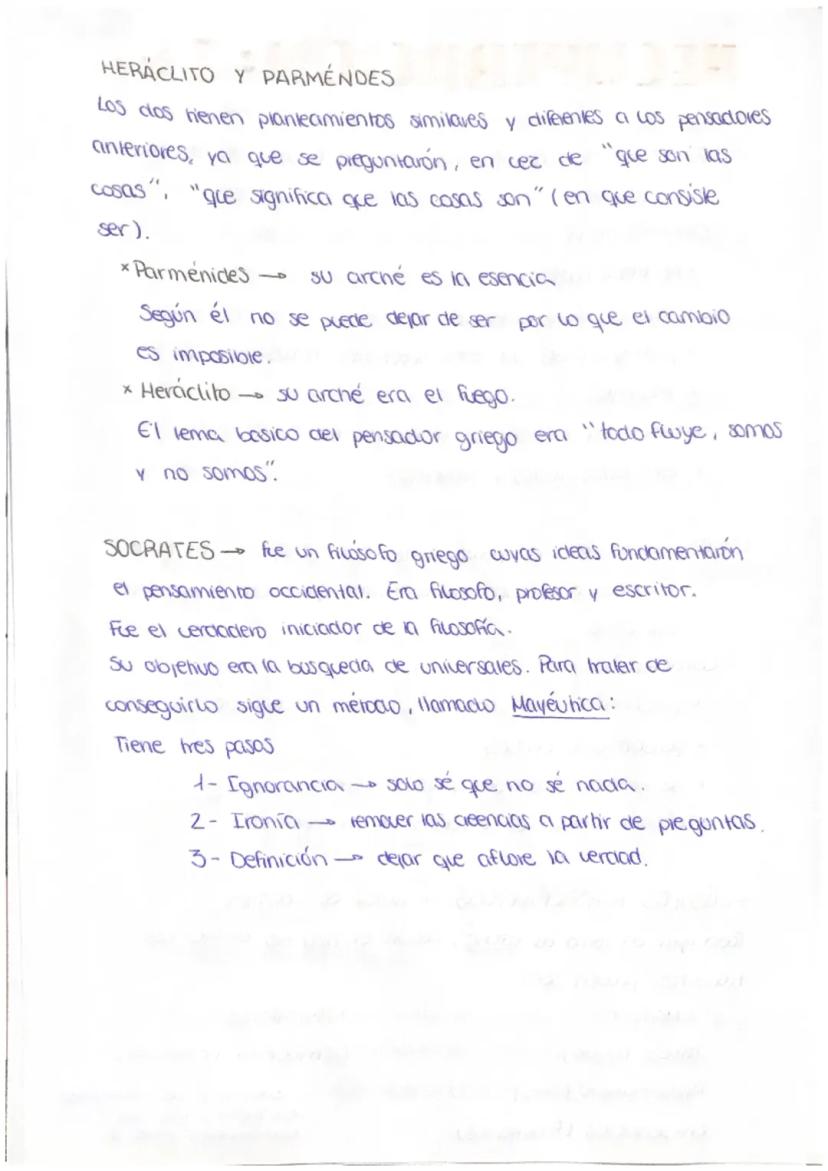 HERÁCLITO Y PARMÉNDES
Los dos tienen planteamientos similares y diferentes a los pensadores
anteriores, ya que se preguntarón, en vez de "que son las
cosas", "que significa que las cosas son" (en que consiste
ser).
* Parménides → su arché es la esencia
Según él no se puede dejar de ser por lo que el cambio
es imposible.
* Heráclito → su arché era el fuego.
El lema basico del pensador griego era "todo fluye, somos
y no somos".
SOCRATES → fue un filósofo griego cuyas ideas fundamentarón
el pensamiento occidental. Era filosofo, profesor y escritor.
Fue el verdadero iniciador de la filosofía.
Su objetivo era la busqueda de universales. Para tratar de
conseguirlo sigue un método, llamado Mayéutica:
Tiene tres pasos
1- Ignorancia → solo sé que no sé nada.
2- Ironía → remover las creencias a partir de preguntas.
3- Definición → dejar que aflore la verdad.